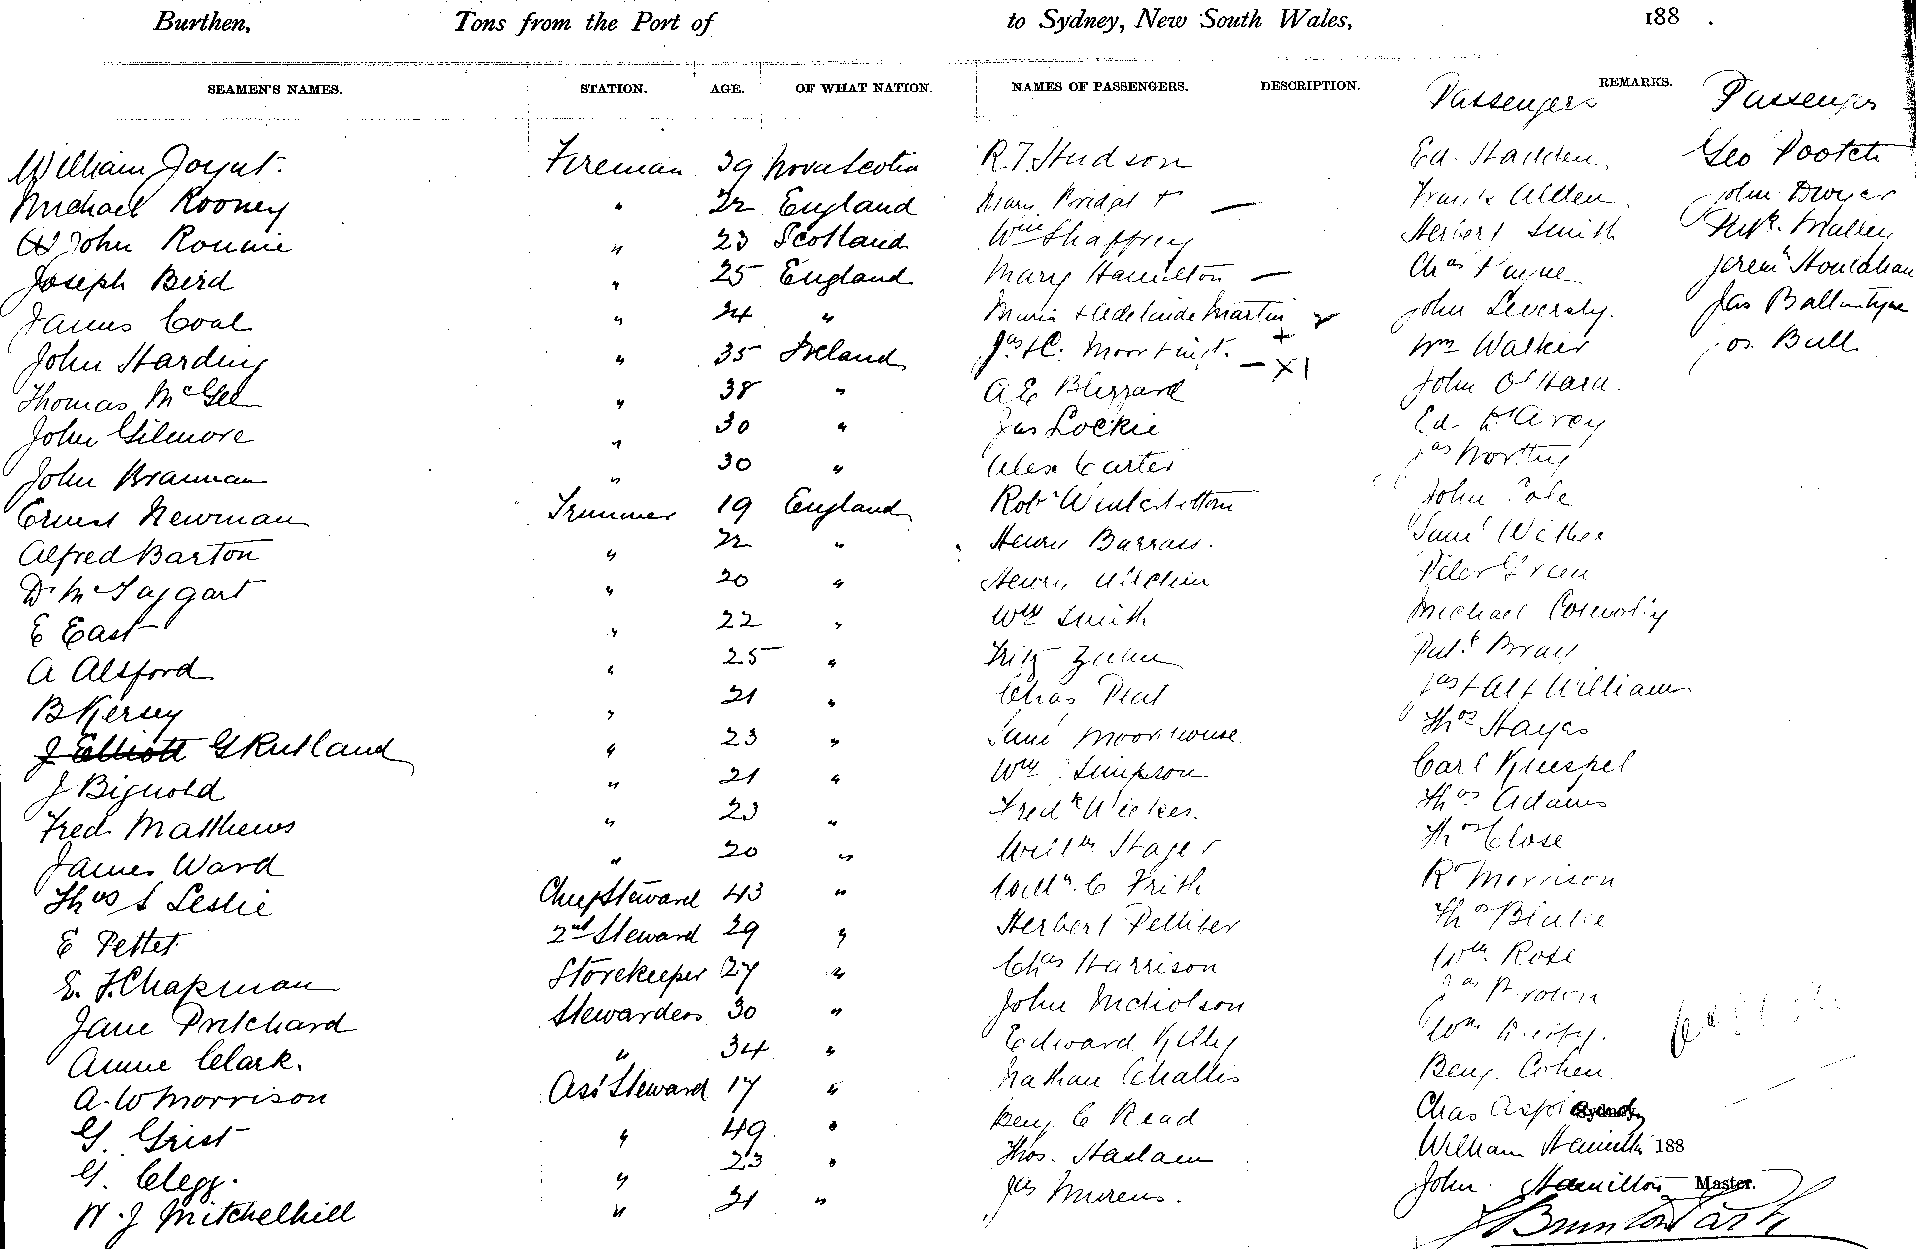 Burthen, Tons from the Port of to Sydney, New South Wales, 188 .
SEAMEN'S NAMES. STATION. AGE. OF WHAT NATION. NAMES OF PASSENGERS. DESCRIPTION. REMARKS.
Passengers Passengers
William Joynt. Fireman 39 Nova Scotia R. T. Hudson Ed. Hadden Geo Pootch
Michael Rooney " 22 England Mary Bridget + — Frank Alden John Dwyer
John Rennie " 23 Scotland Wm Shaffrey Herbert Smith Patk. Malley
Joseph Bird " 25 England Mary Hamilton — Chas Payne Jerem Houlahan
James Coal " 24 " Maria + Adelinde Martin John Seversly. Jas Ballantyne
John Harding " 35 Ireland Jas + C. Moor + inft. — X1 Wm Walker Jos. Bull
Thomas McGee " 38 " A E Blizzard John O'Hara.
John Gilmore " 30 " Jas Lockie Ed. D'Arcy
John Brannan " 30 " Alex Carter Jas Worthy
Ernest Newman Trimmer 19 England Robt Winterbottom John Cole
Alfred Barton " 22 " Henry Barrass. Saml
D. McTaggart " 20 " Henry Peter Green
E East " 22 " Wm Smith Michael Connolly
A Alsford " 25 " Fritz Zuhn Patk Bray
B Kersey " 21 " Chas Peat Jas + Alf Williams
J Elliott G Rutland " 23 " Saml Moorhouse Thos Hayes
J Bignold " 21 " Wm Simpson Carl Knespel
Fred Matthews " 23 " Fredk Wickes. Thos Adams
James Ward " 20 " Willm Stager Thos Close
Thos S Leslie Chief Steward 43 " Willm. C Frith Rt Morrison
E Pettet 2nd Steward 29 " Herbert Pelliter Thos Blake
E. F. Chapman Storekeeper 27 " Chas Harrison Wm Rose
Jane Pritchard Stewardess 30 " John Nicholson Jas Brown
Annie Clark. " 34 " Edward Kelly Wm
A. W Morrison Asst Steward 17 " Nathan Challis Benj. Cohen
G. Grist " 49 " Benj C Read Chas Sydney
G. Clegg. " 23 " Thos. Haslam William Hamilton 188
W. J Mitchelhill " 21 " Jas Murens. John Hamilton Master.